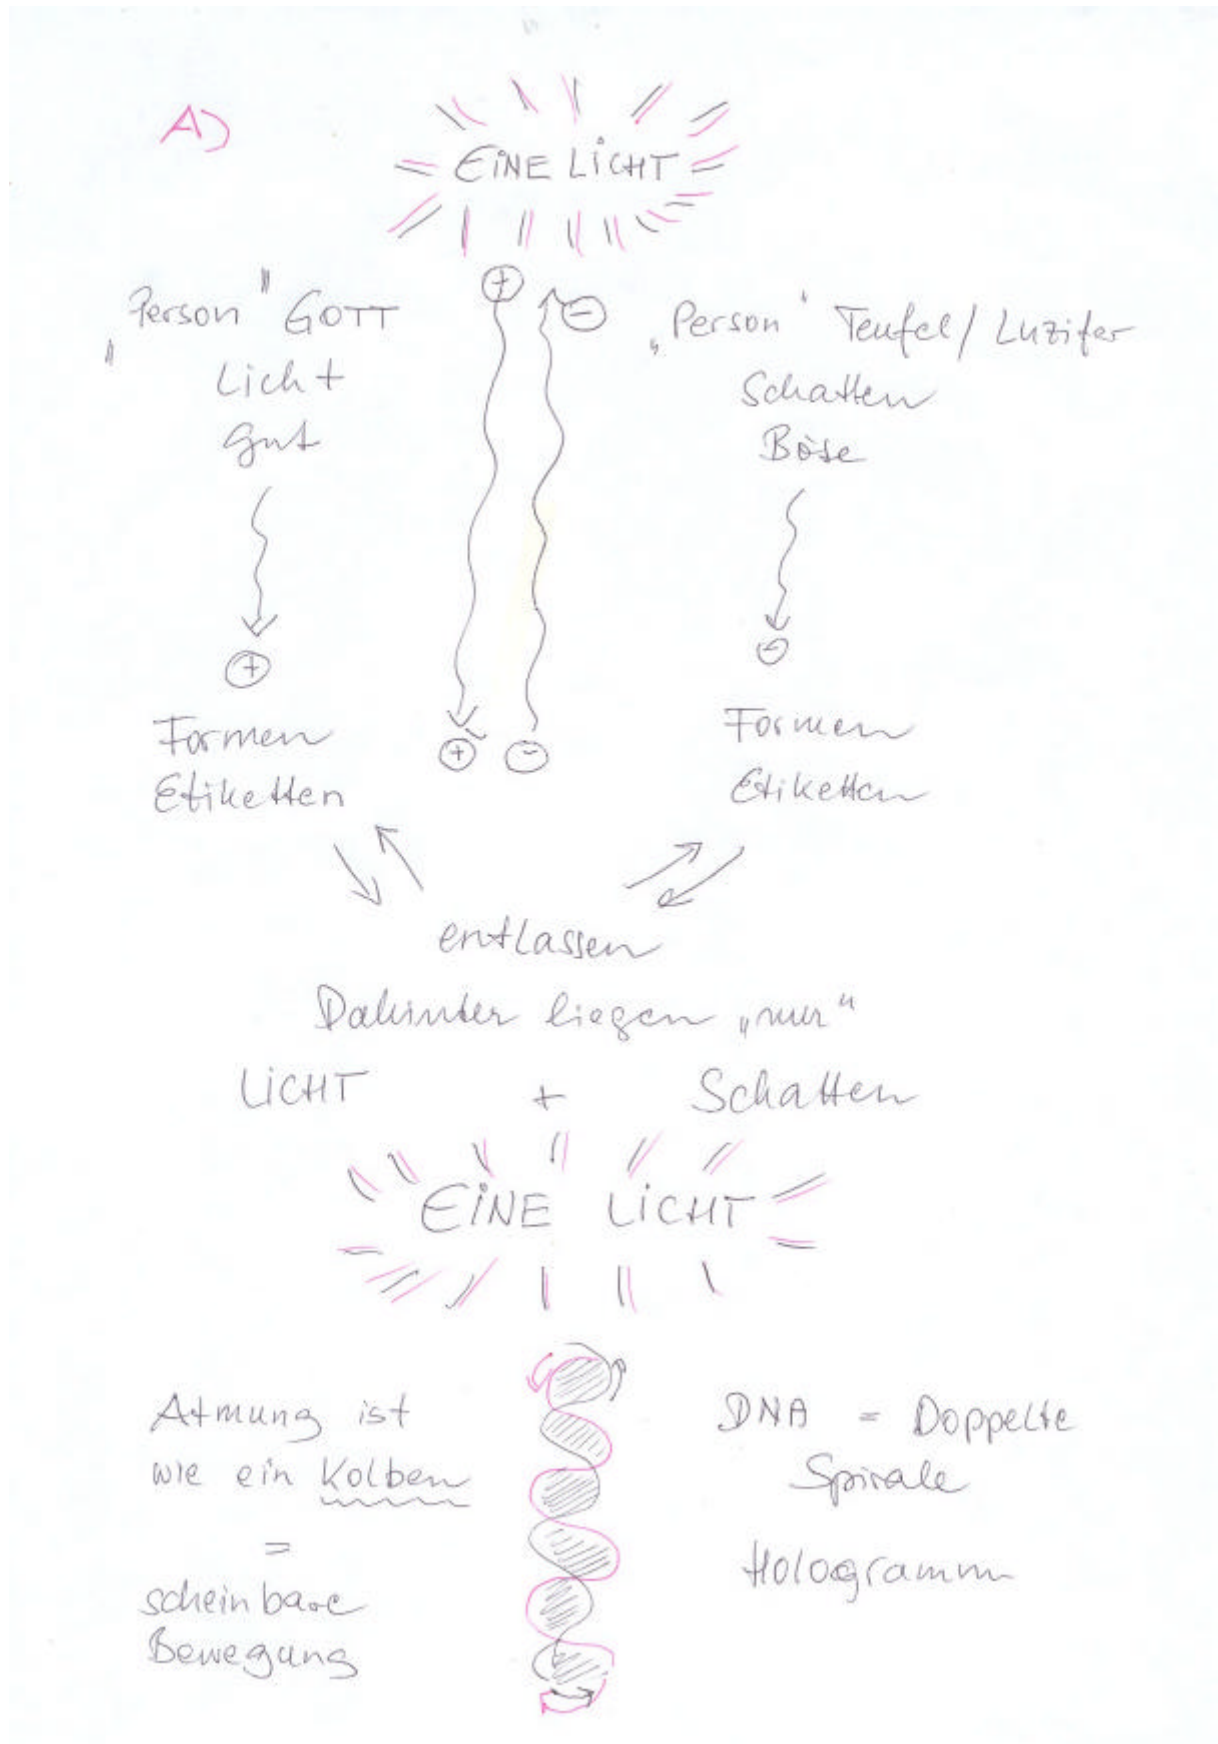 A)
EINE LICHT
„Person" GOTT
Licht
gut
+
-
„Person' Teufel/Luzifer
Schatten
Böse
+
-
Formen
Etiketten
+ -
Formen
Etiketten
entlassen
Dahinter liegen „nur"
LICHT + Schatten
EINE LICHT
Atmung ist
wie ein Kolben
=
scheinbare
Bewegung
DNA = Doppelte
Spirale
Hologramm